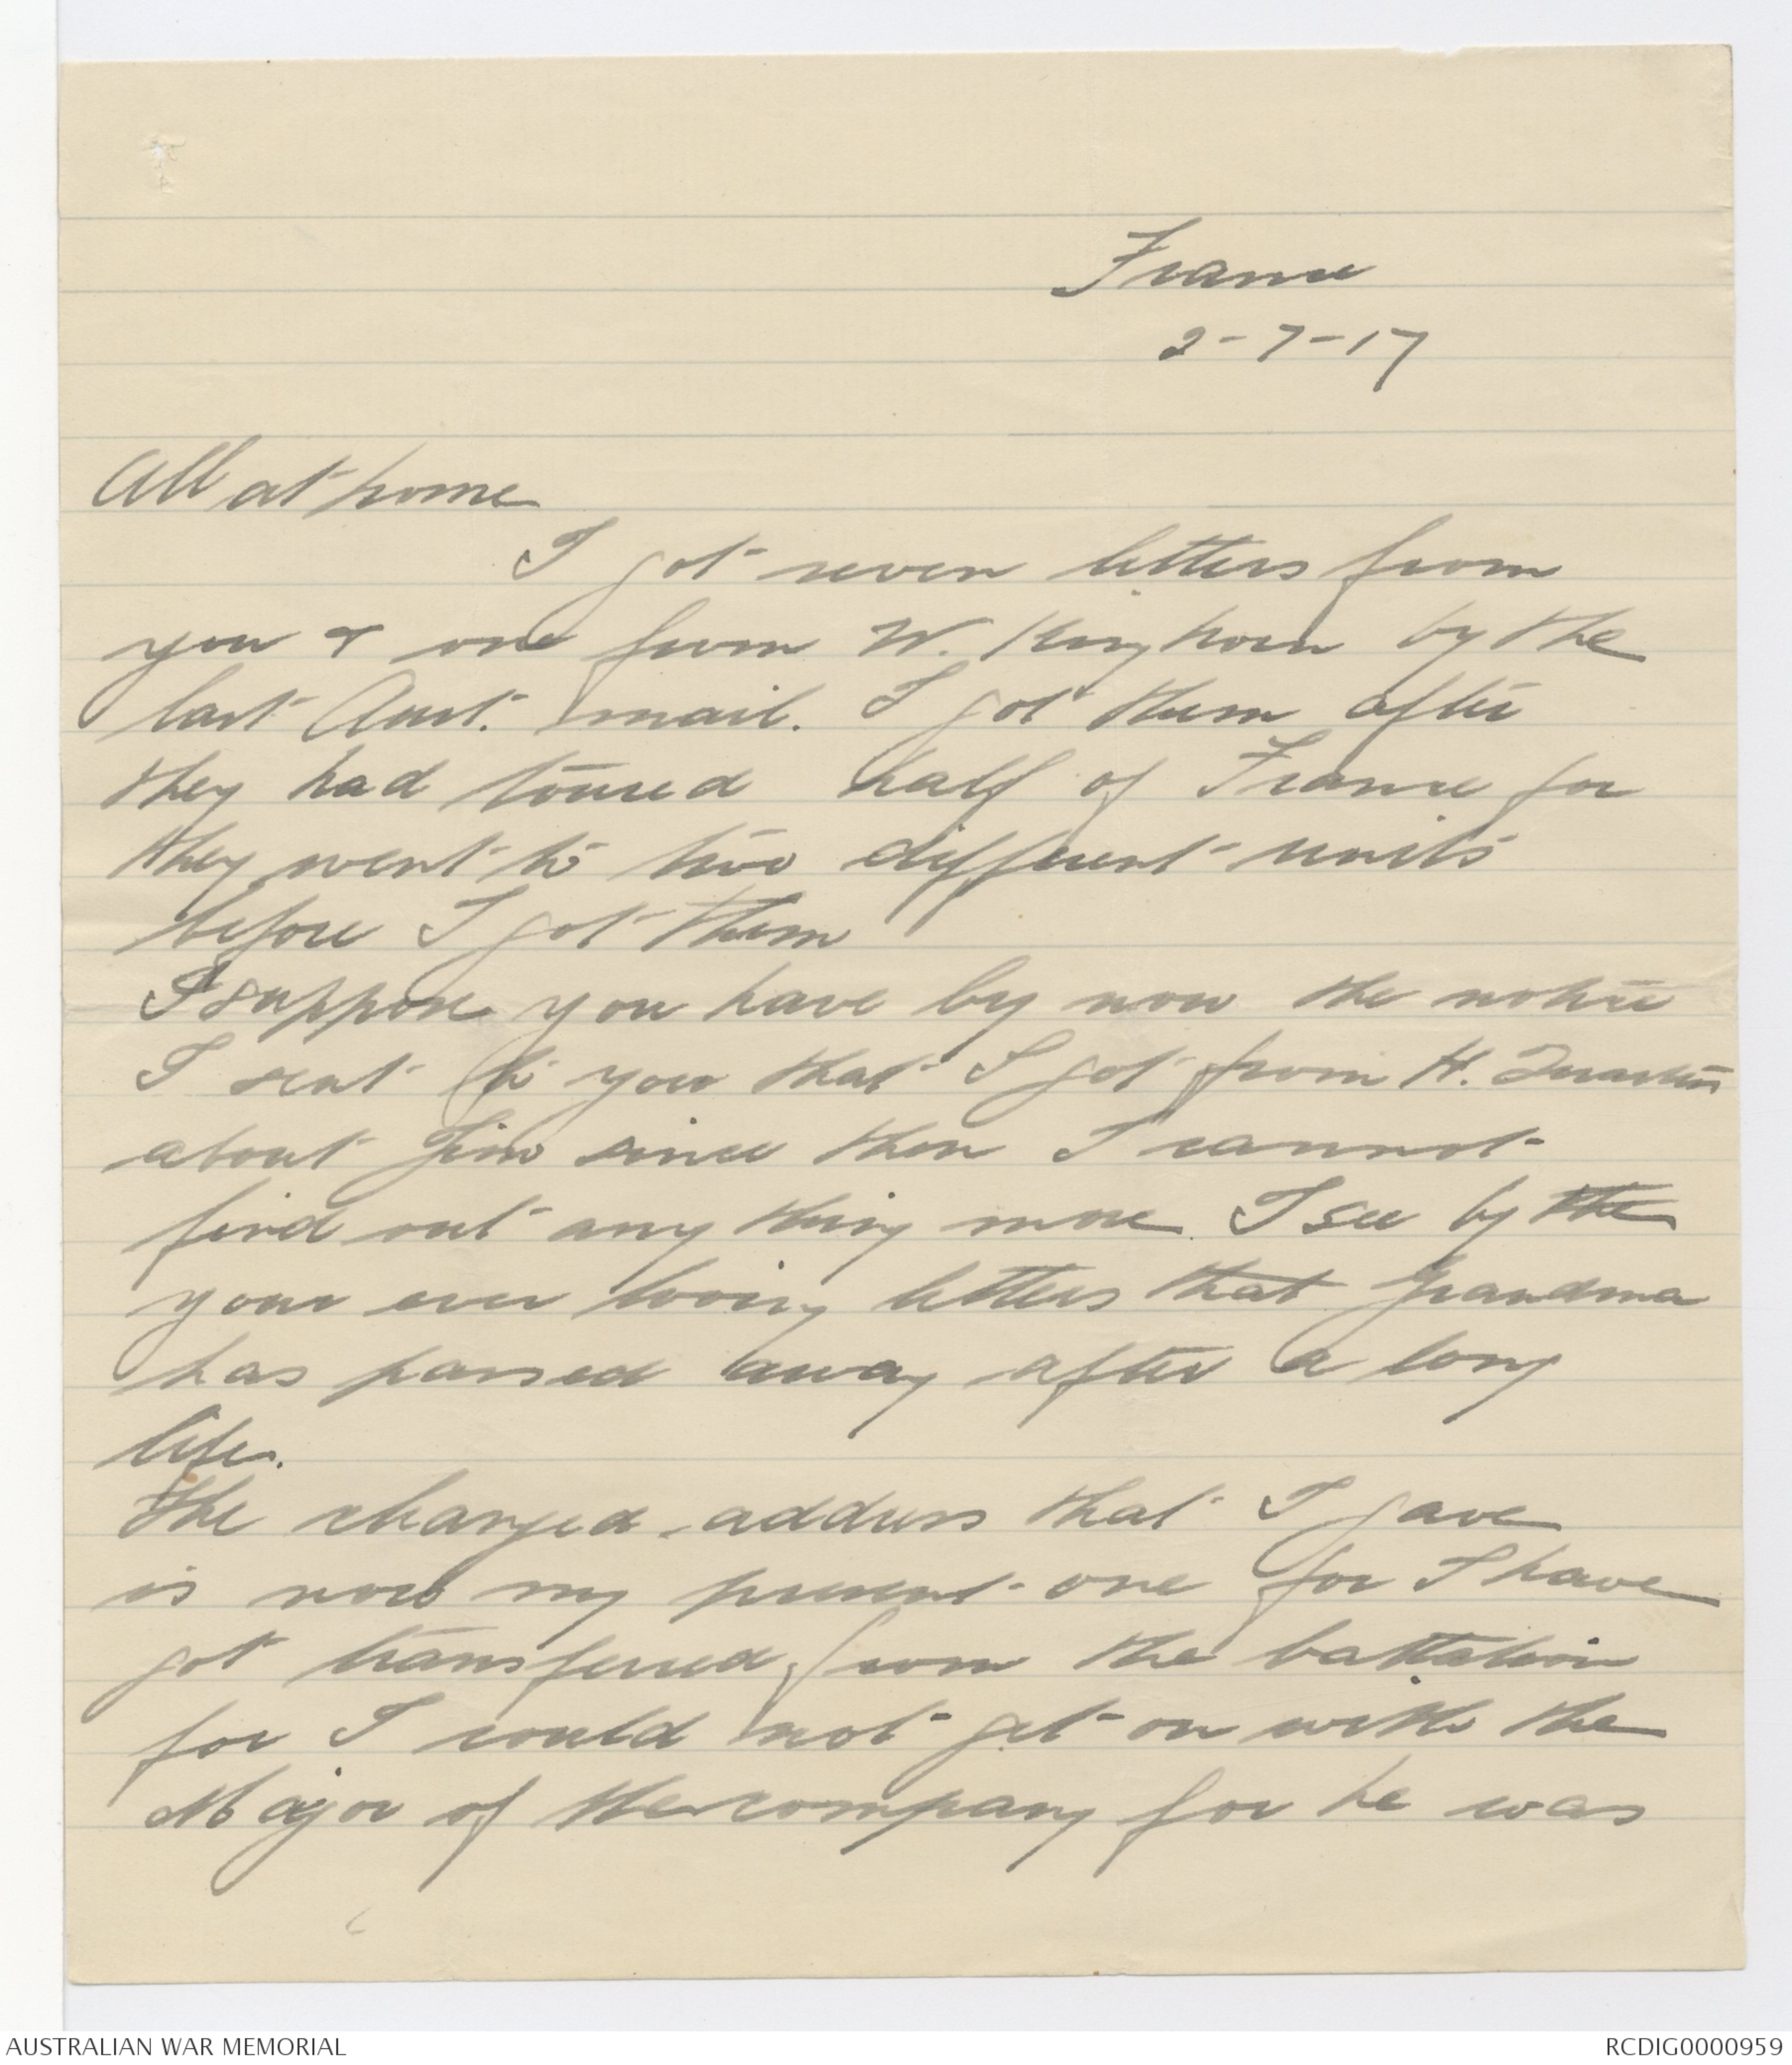 France
2-7-17
All at home
I got seven letters from
you & one from W. Kinghorn by the
last Aust. mail. I got them after
they had toured half of France for
they went to two different units
before I got them
I suppose you have by now the notice
I sent to you that I got from H. Quarters
about Jim since then I cannot
find out any thing more. I see by the
your ever loving letters that Grandma
has passed away after a long
life.
The changed address that I gave
is now my present one for I have
got transferred from the battalion
for I could not get on with the
Major of the company for he was
AUSTRALIAN WAR MEMORIAL
RCDIG0000959